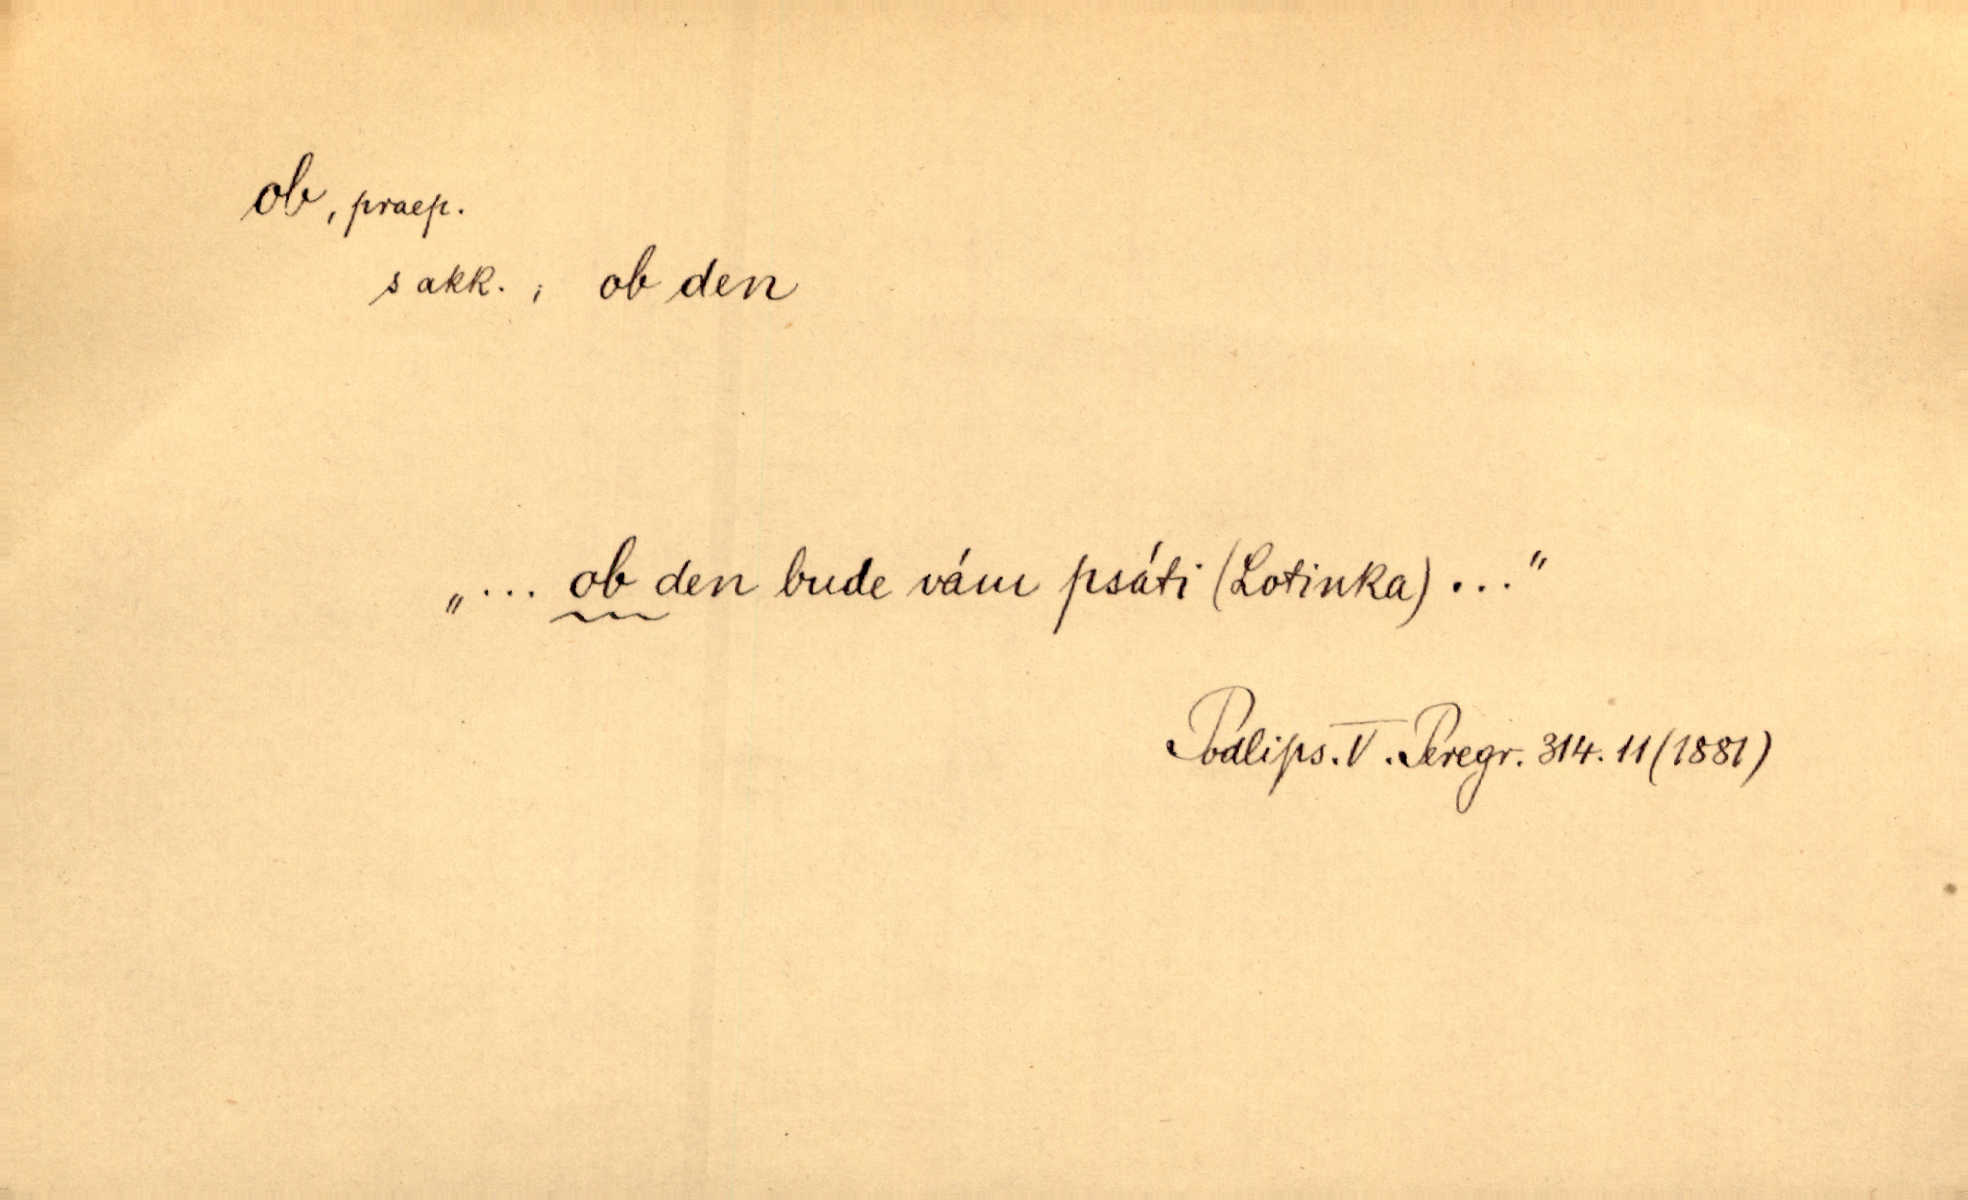 ob, praep.
s akk.; ob den
„... ob den bude vám psáti (Lotinka) ..."
Podlips. V. Peregr. 314. 11 (1881)